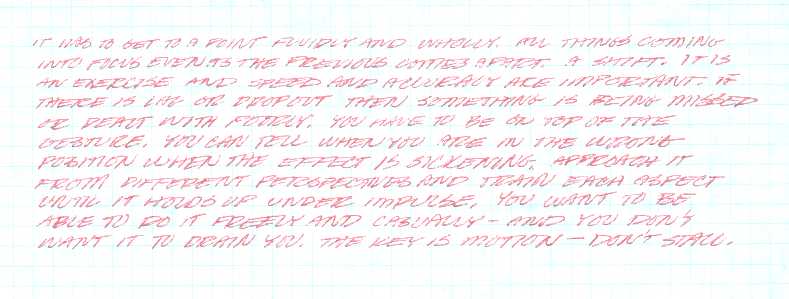 IT HAS TO GET TO A POINT FLUIDLY AND WHOLLY. ALL THINGS COMING
INTO FOCUS EVEN AS THE PREVIOUS COMES APART. A SHIFT. IT IS
AN EXERCISE AND SPEED AND ACCURACY ARE IMPORTANT. IF
THERE IS LAG OR DROPOUT THEN SOMETHING IS BEING MISSED
OR DEALT WITH POORLY. YOU HAVE TO BE ON TOP OF THE
GESTURE. YOU CAN TELL WHEN YOU ARE IN THE WRONG
POSITION WHEN THE EFFECT IS SICKENING. APPROACH IT
FROM DIFFERENT PERSPECTIVES AND TRAIN EACH ASPECT
UNTIL IT HOLDS UP UNDER IMPULSE. YOU WANT TO BE
ABLE TO DO IT FREELY AND CASUALLY – AND YOU DON'T
WANT IT TO DRAIN YOU. THE KEY IS MOTION – DON'T STALL.